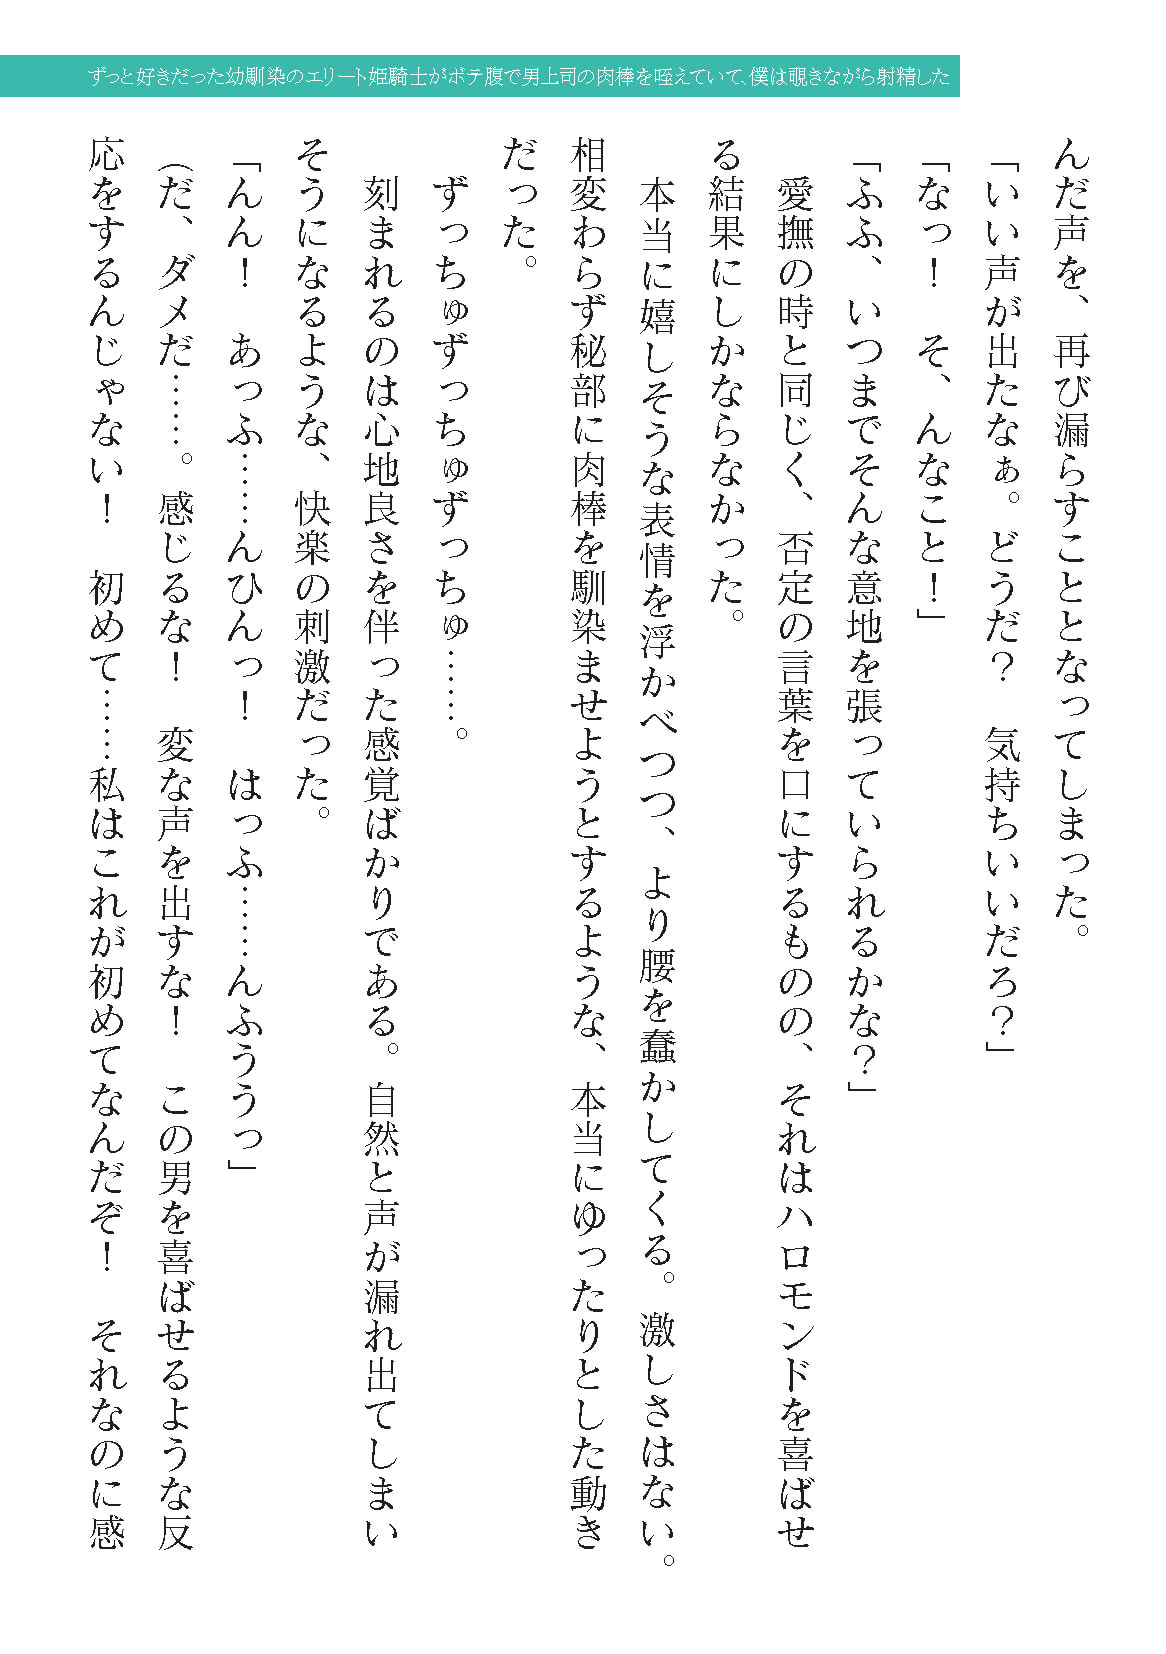 ずっと好きだった幼馴染のエリート姫騎士がボテ腹で男上司の肉棒を咥えていて、僕は覗きながら射精した
んだ声を、再び漏らすこととなってしまった。
「いい声が出たなぁ。どうだ？　気持ちいいだろ？」
「なっ！　そ、んなこと！」
「ふふ、いつまでそんな意地を張っていられるかな？」
　愛撫の時と同じく、否定の言葉を口にするものの、それはハロモンドを喜ばせ
る結果にしかならなかった。
　本当に嬉しそうな表情を浮かべつつ、より腰を蠢かしてくる。激しさはない。
相変わらず秘部に肉棒を馴染ませようとするような、本当にゆったりとした動き
だった。
　ずっちゅずっちゅずっちゅ……。
　刻まれるのは心地良さを伴った感覚ばかりである。自然と声が漏れ出てしまい
そうになるような、快楽の刺激だった。
「んん！　あっふ……んひんっ！　はっふ……んふううっ」
（だ、ダメだ……。感じるな！　変な声を出すな！　この男を喜ばせるような反
応をするんじゃない！　初めて……私はこれが初めてなんだぞ！　それなのに感